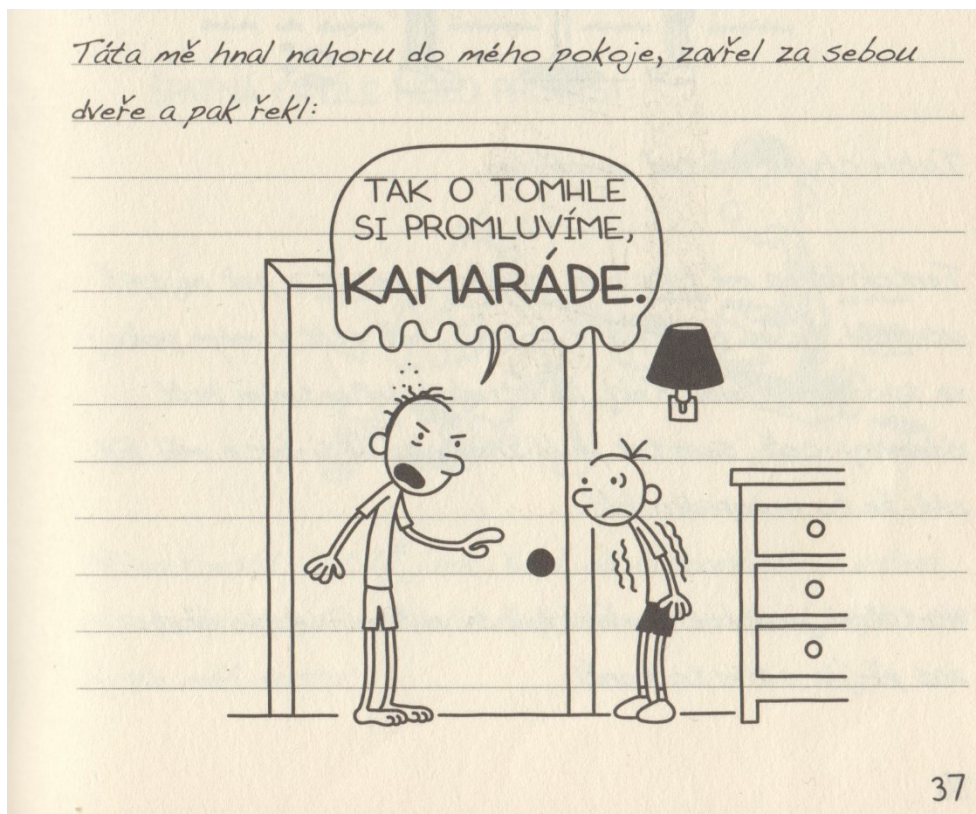 Táta mě hnal nahoru do mého pokoje, zavřel za sebou
dveře a pak řekl:
TAK O TOMHLE
SI PROMLUVÍME,
KAMARÁDE.
37